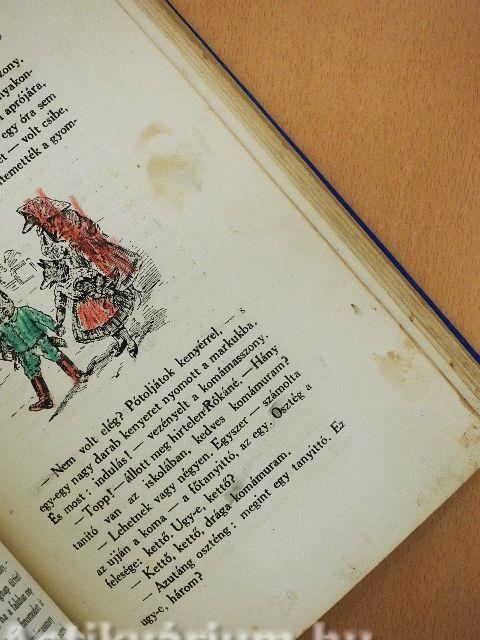 szony.
nyakon-
l aprójára,
egy óra sem
et — volt csibe,
temették a gyom-
— Nem volt elég? Pótoljátok kenyérrel, — s
egy-egy nagy darab kenyeret nyomott a markukba.
És most: indulás! — vezényelt a komámasszony.
— Topp! — állott meg hirtelen Rókáné. — Hány
tanító van az iskolában, kedves komámuram?
— Lehetnek vagy négyen. Egyszer — számolta
az ujján a koma — a főtanyító, az egy. Osztég a
felesége: kettő. Ugy-e, kettő?
— Kettő, kettő, drága komámuram.
— Azutáng oszténg: megint egy tanyittó. Ez
ugy-e, három?
Antikvárium.hu